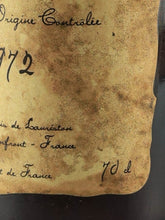 Origine Contrôlée
1972
in de Lauriston
nfront - France
t de France
70 cl